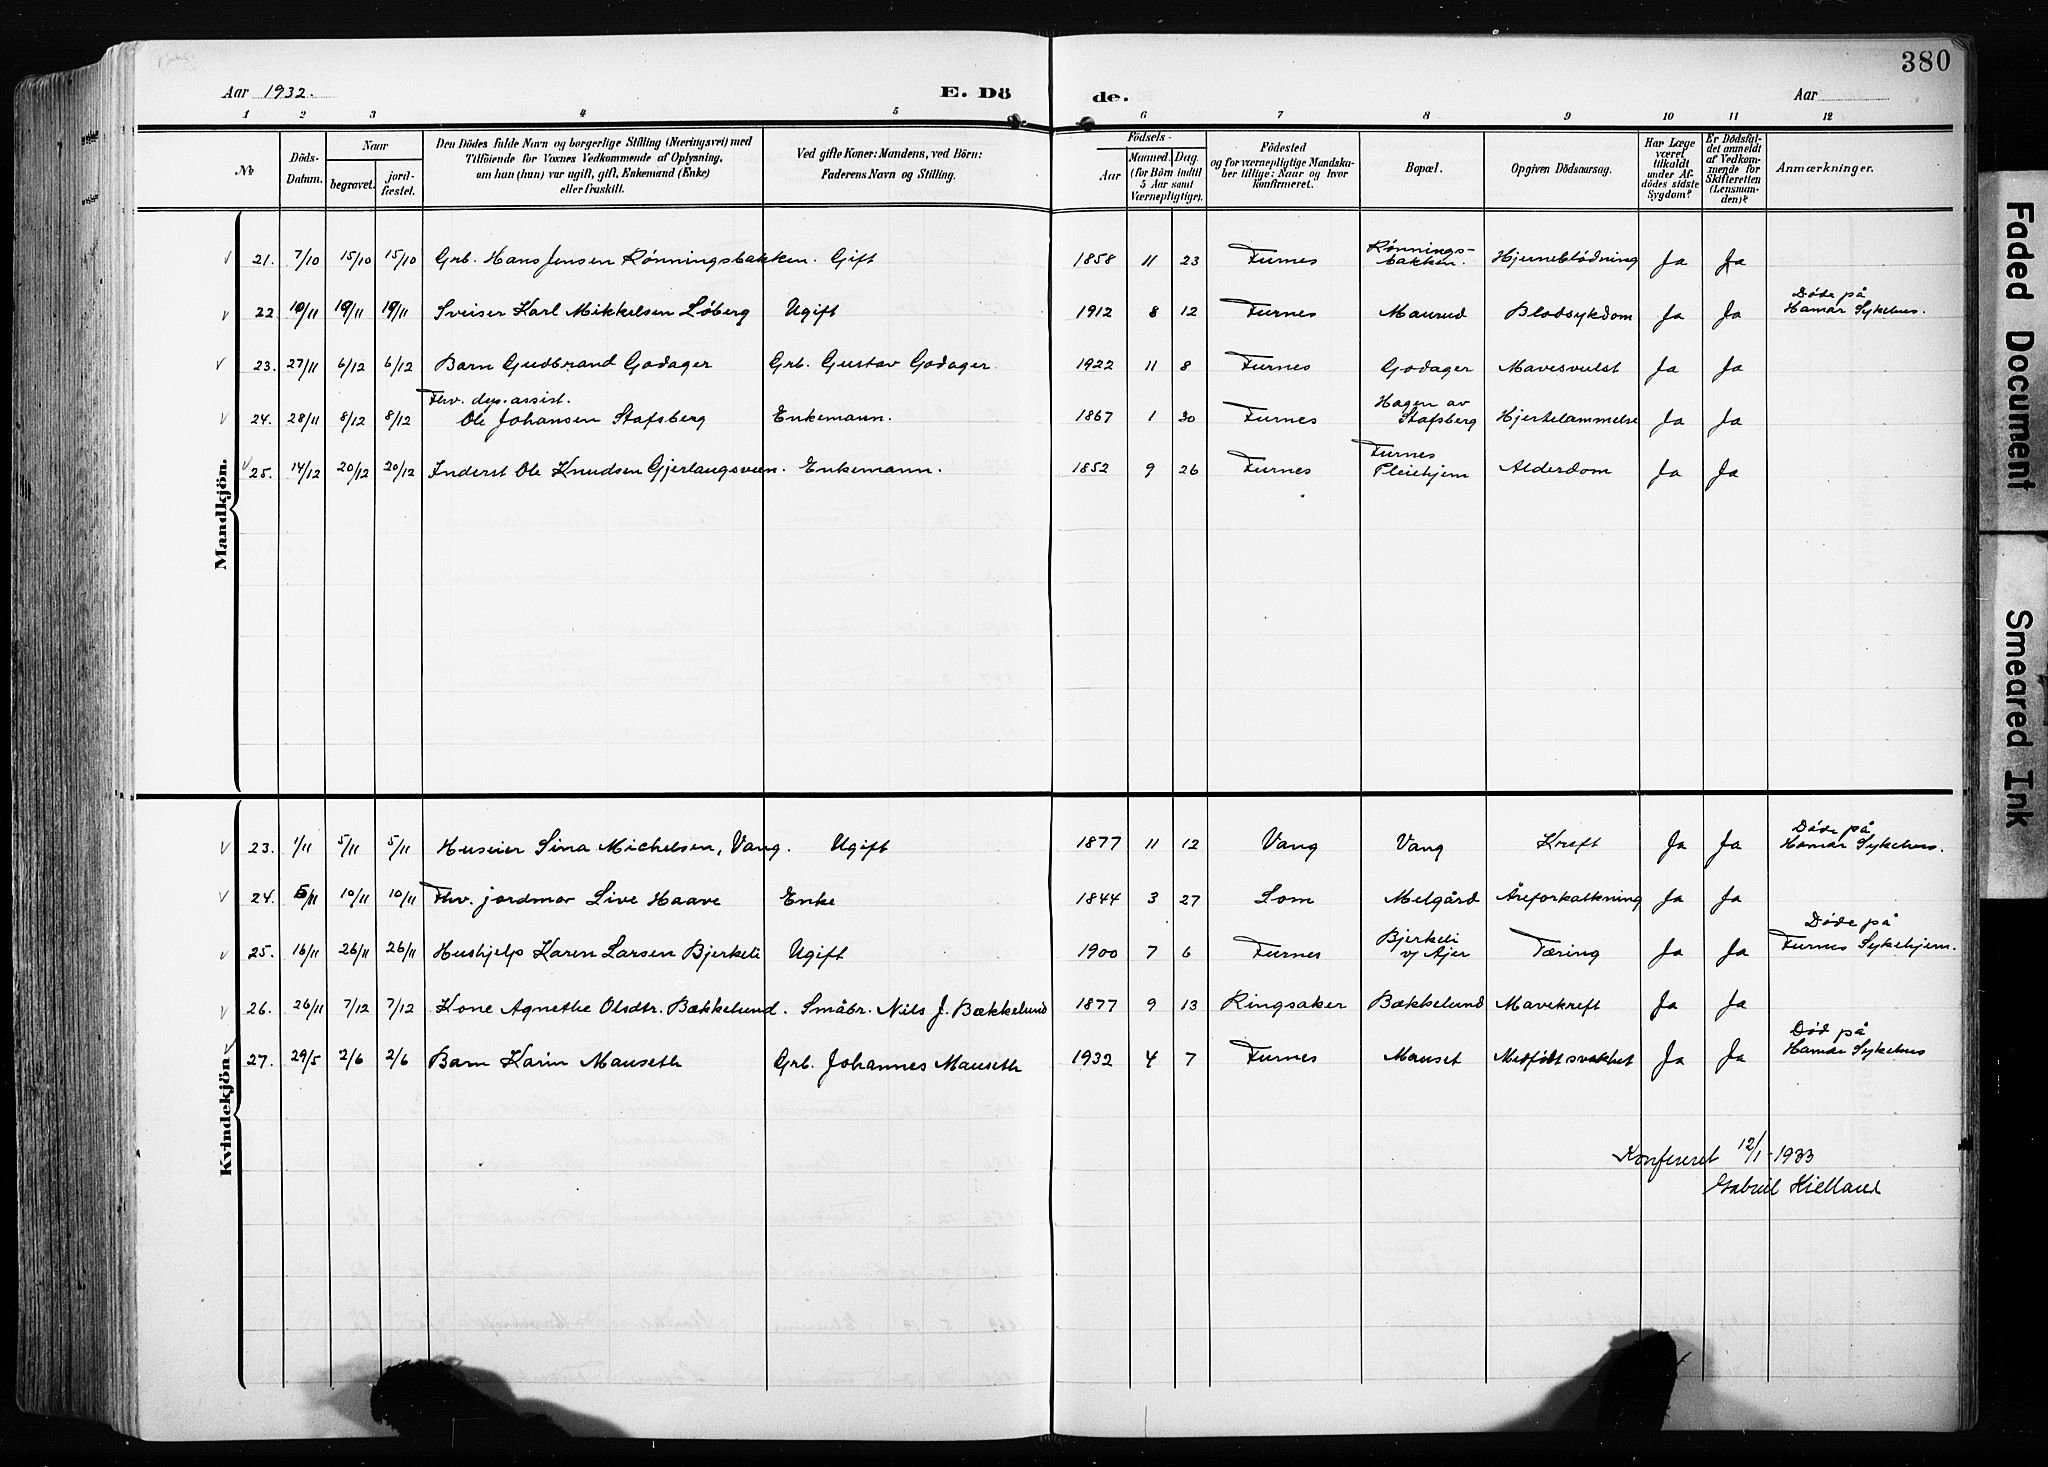 380
Aar 1932. E. Dö de. Aar
1 2 3 4 5 6 7 8 9 10 11 12
No Döds-Datum. Naar begravet. jord-fæstet. Den Dödes fulde Navn og borgerlige Stilling (Næringsvei) med Tilföiende for Voxnes Vedkommende af Oplysning, om han (hun) var ugift, gift, Enkemand (Enke) eller fraskilt. Ved gifte Koner: Mandens, ved Börn: Faderens Navn og Stilling. Födsels- Aar Maaned. Dag. (for Börn indtil 5 Aar samt Værnepligtige). Födested og for værnepligtige Mandskaber tillige: Naar og hvor konfirmeret. Bopæl. Opgiven Dödsaarsag. Har Læge været tilkaldt under Afdödes sidste Sygdom? Er Dödsfaldet anmeldt af Vedkommende for Skifteretten (Lensmanden)? Anmærkninger.
Mandkjön.
21. 7/10 15/10 15/10 Grb. Hans Jensen Rønningsbakken. Gift 1858 11 23 Furnes Rønnings-bakken. Hjerneblødning Ja Ja
22 10/11 19/11 19/11 Sveiser Karl Mikkelsen Løberg Ugift 1912 8 12 Furnes Maurud Blodsykdom Ja Ja Døde på Hamar Sykehus.
23. 27/11 6/12 6/12 Barn Gudbrand Godager Grb. Gustav Godager. 1922 11 8 Furnes Godager Mavesvulst Ja Ja
24. 28/11 8/12 8/12 Fhv. dys. assist. Ole Johansen Stafsberg Enkemann. 1867 1 30 Furnes Hagen av Stafsberg Hjertelammelse Ja Ja
25. 14/12 20/12 20/12 Inderst Ole Knudsen Gjerlaugsveen. Enkemann. 1852 9 26 Furnes Furnes Pleiehjem Alderdom Ja Ja
Kvindekjön
23. 1/11 5/11 5/11 Huseier Sina Michelsen, Vang. Ugift 1877 11 12 Vang Vang Kræft Ja Ja Døde på Hamar Sykehus.
24. 5/11 10/11 10/11 Fhv. jordmor Live Haave Enke 1844 3 27 Lom Melgård Åreforkalkning Ja Ja
25. 16/11 26/11 26/11 Hushjelp Karen Larsen Bjerkeli Ugift 1900 7 6 Furnes Bjerkeli v/ Ajer Tæring Ja Ja Døde på Furnes Sykehjem.
26. 26/11 7/12 7/12 Kone Agnethe Olsdtr. Bækkelund. Småbr. Nils J. Bækkelund 1877 9 13 Ringsaker Bækkelund Mavekreft Ja Ja
27. 29/5 2/6 2/6 Barn Karin Mauseth Grb. Johannes Mauseth 1932 4 7 Furnes Mauset Medfødt svakhet Ja Ja Død på Hamar Sykehus
Konfereret 12/1-1933
Gabriel Kielland
Faded Document
Smeared Ink